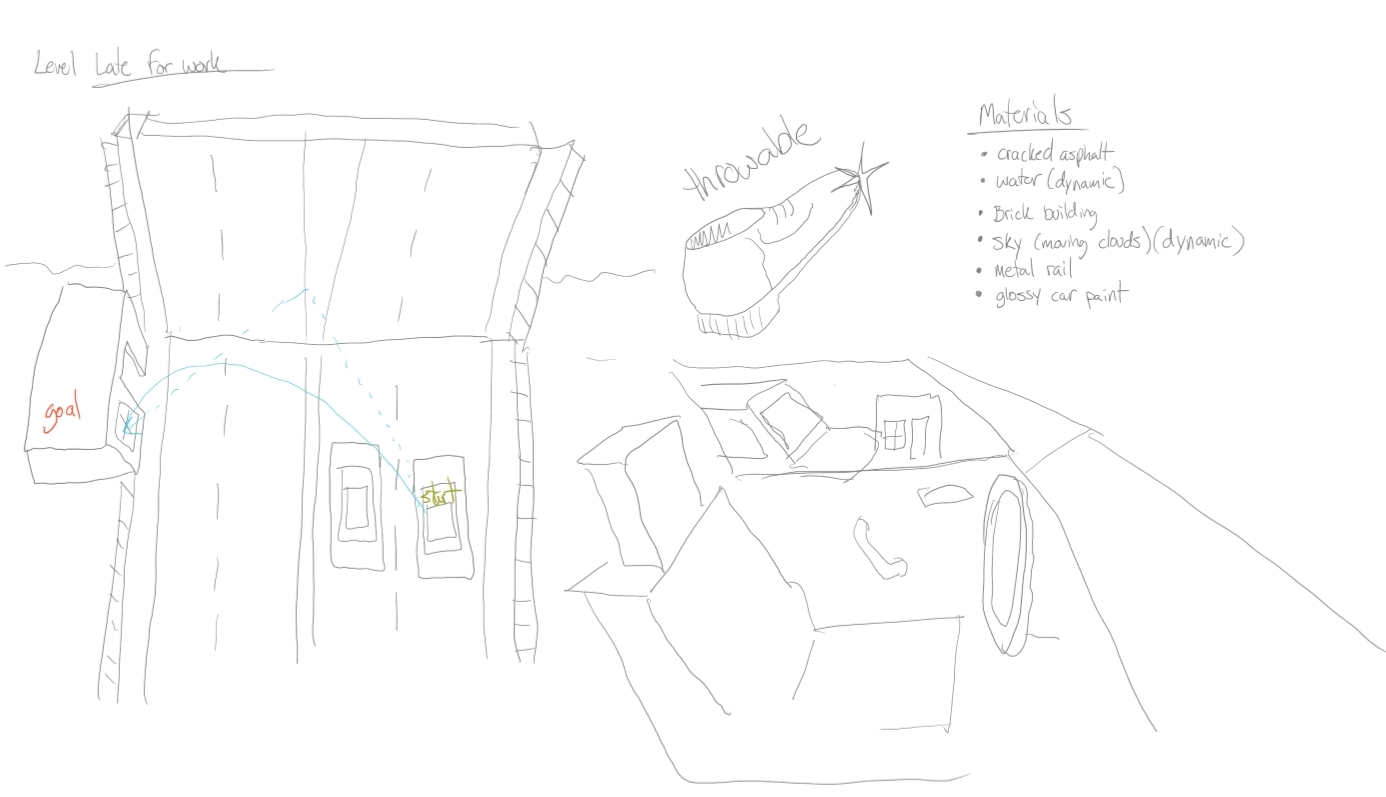 Level Late for work
throwable
Materials
• cracked asphalt
• water (dynamic)
• Brick building
• sky (moving clouds) (dynamic)
• metal rail
• glossy car paint
goal
start